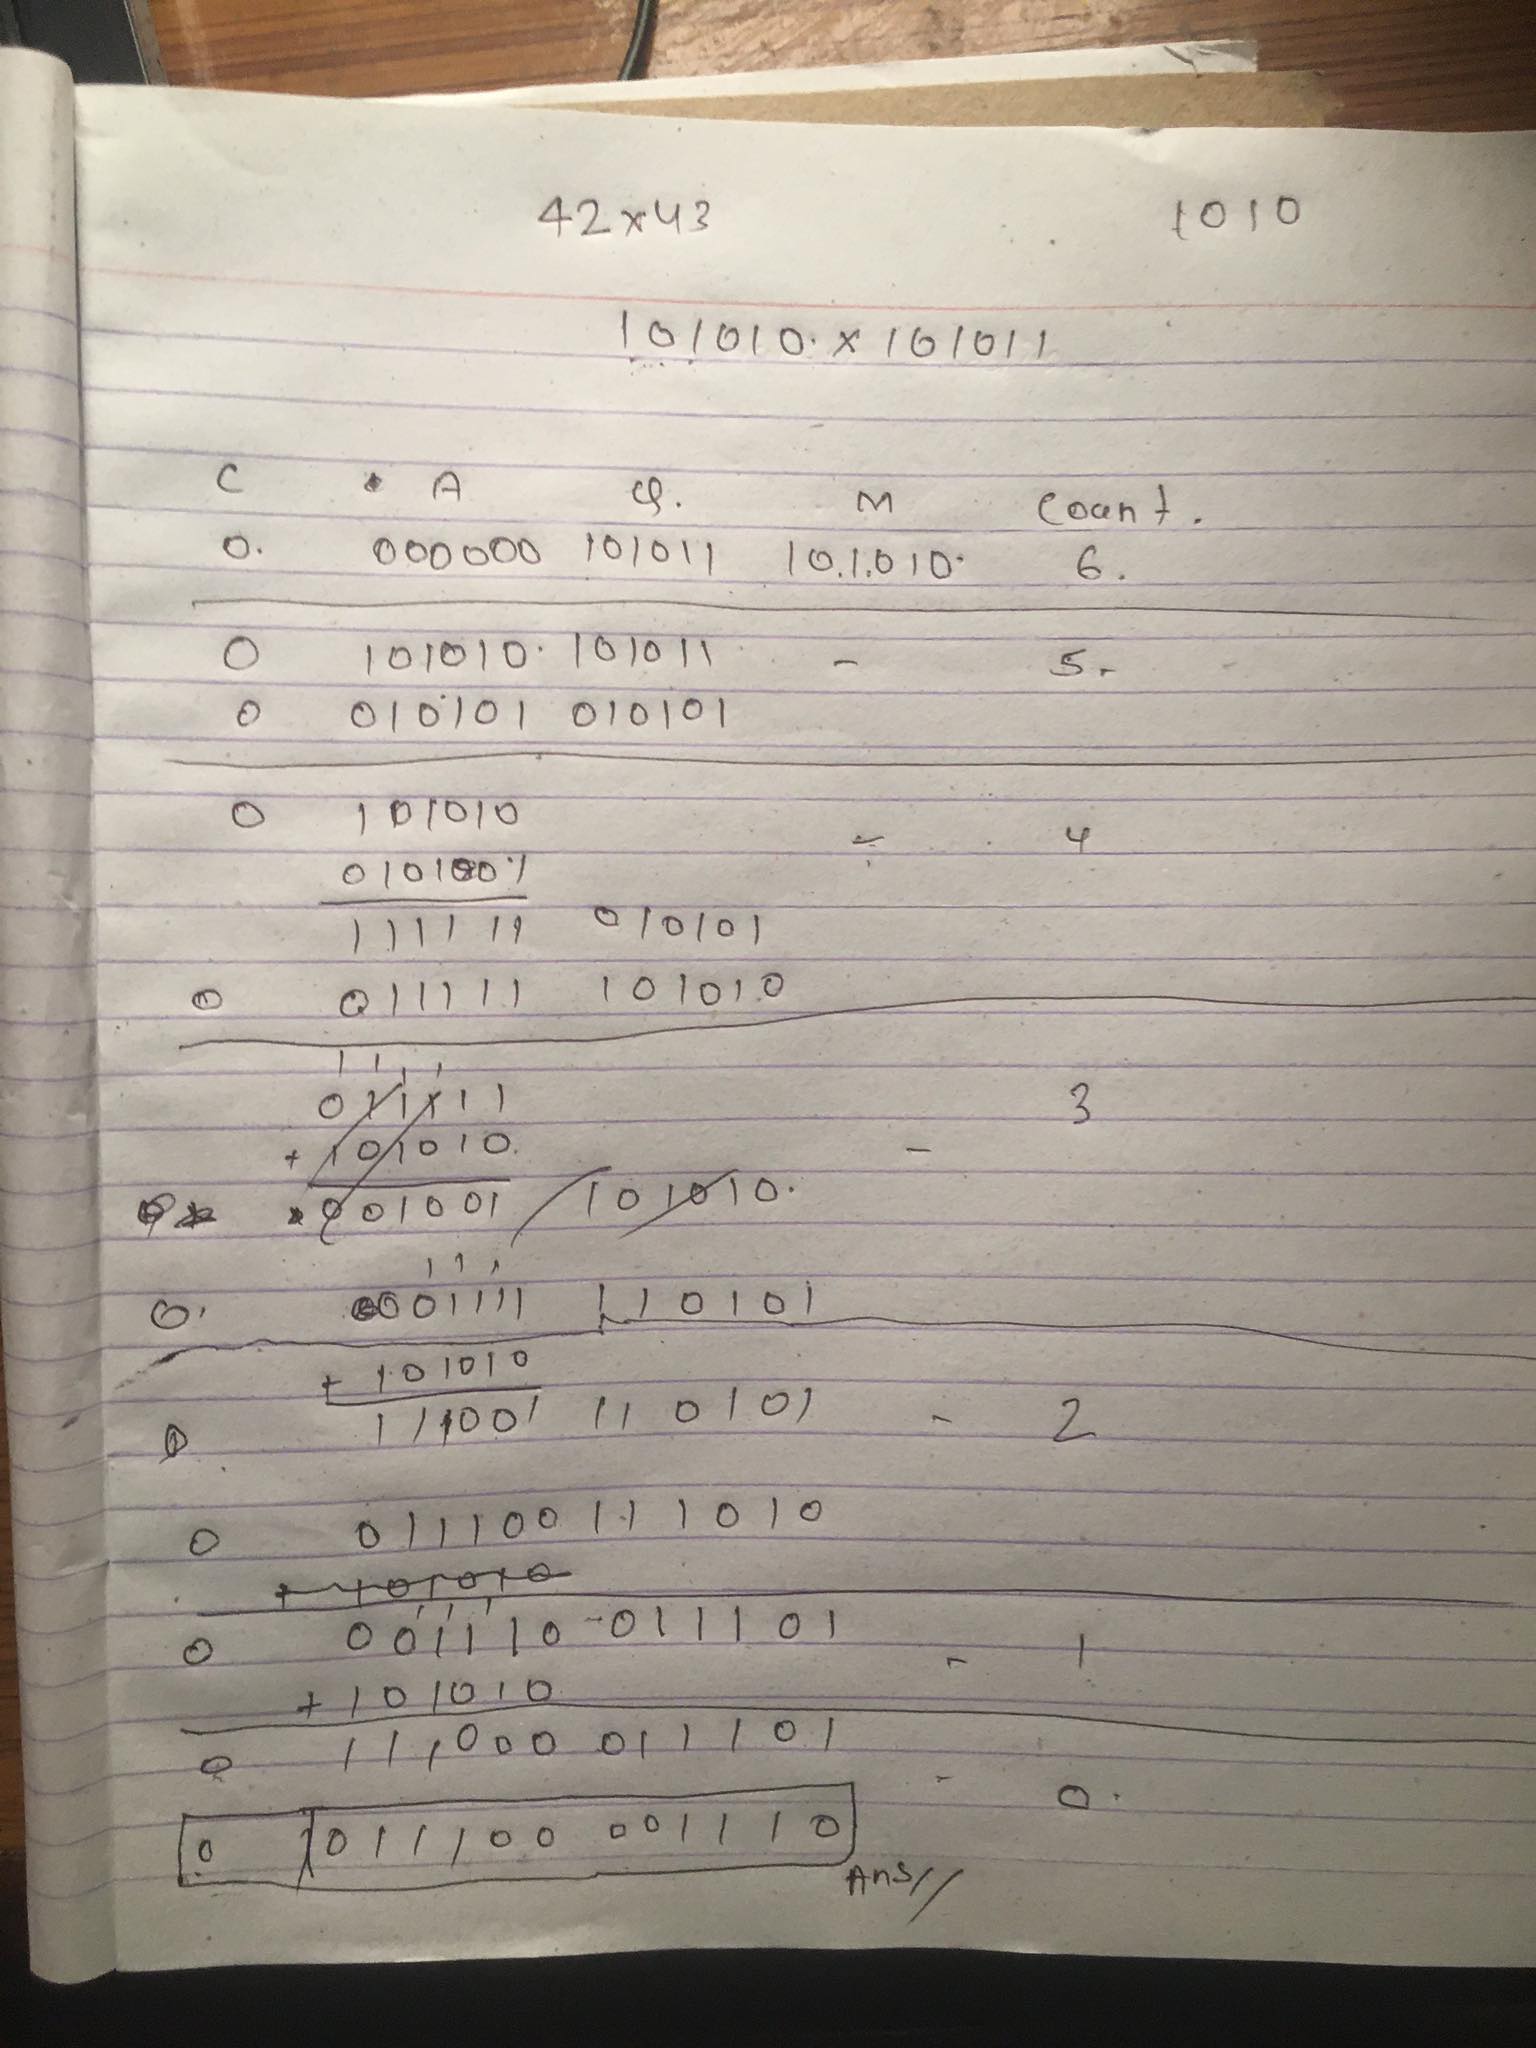 42 x 43 1010
101010. x 101011
C A Q. M Count.
0. 000000 101011 10.1.010. 6.
0 101010. 101011 - 5.
0 010101 010101
0 101010 - 4
010101
111111 010101
0 011111 101010
1111
011111 3
+ 101010. -
001001 101010.
111
0. 001111 110101
+ 101010
0 111001 110101 - 2
0 011100 111010
+ 101010
111
0 001110 011101 - 1
+ 101010
0 111000 011101
- 0.
0 011100 001110
Ans//